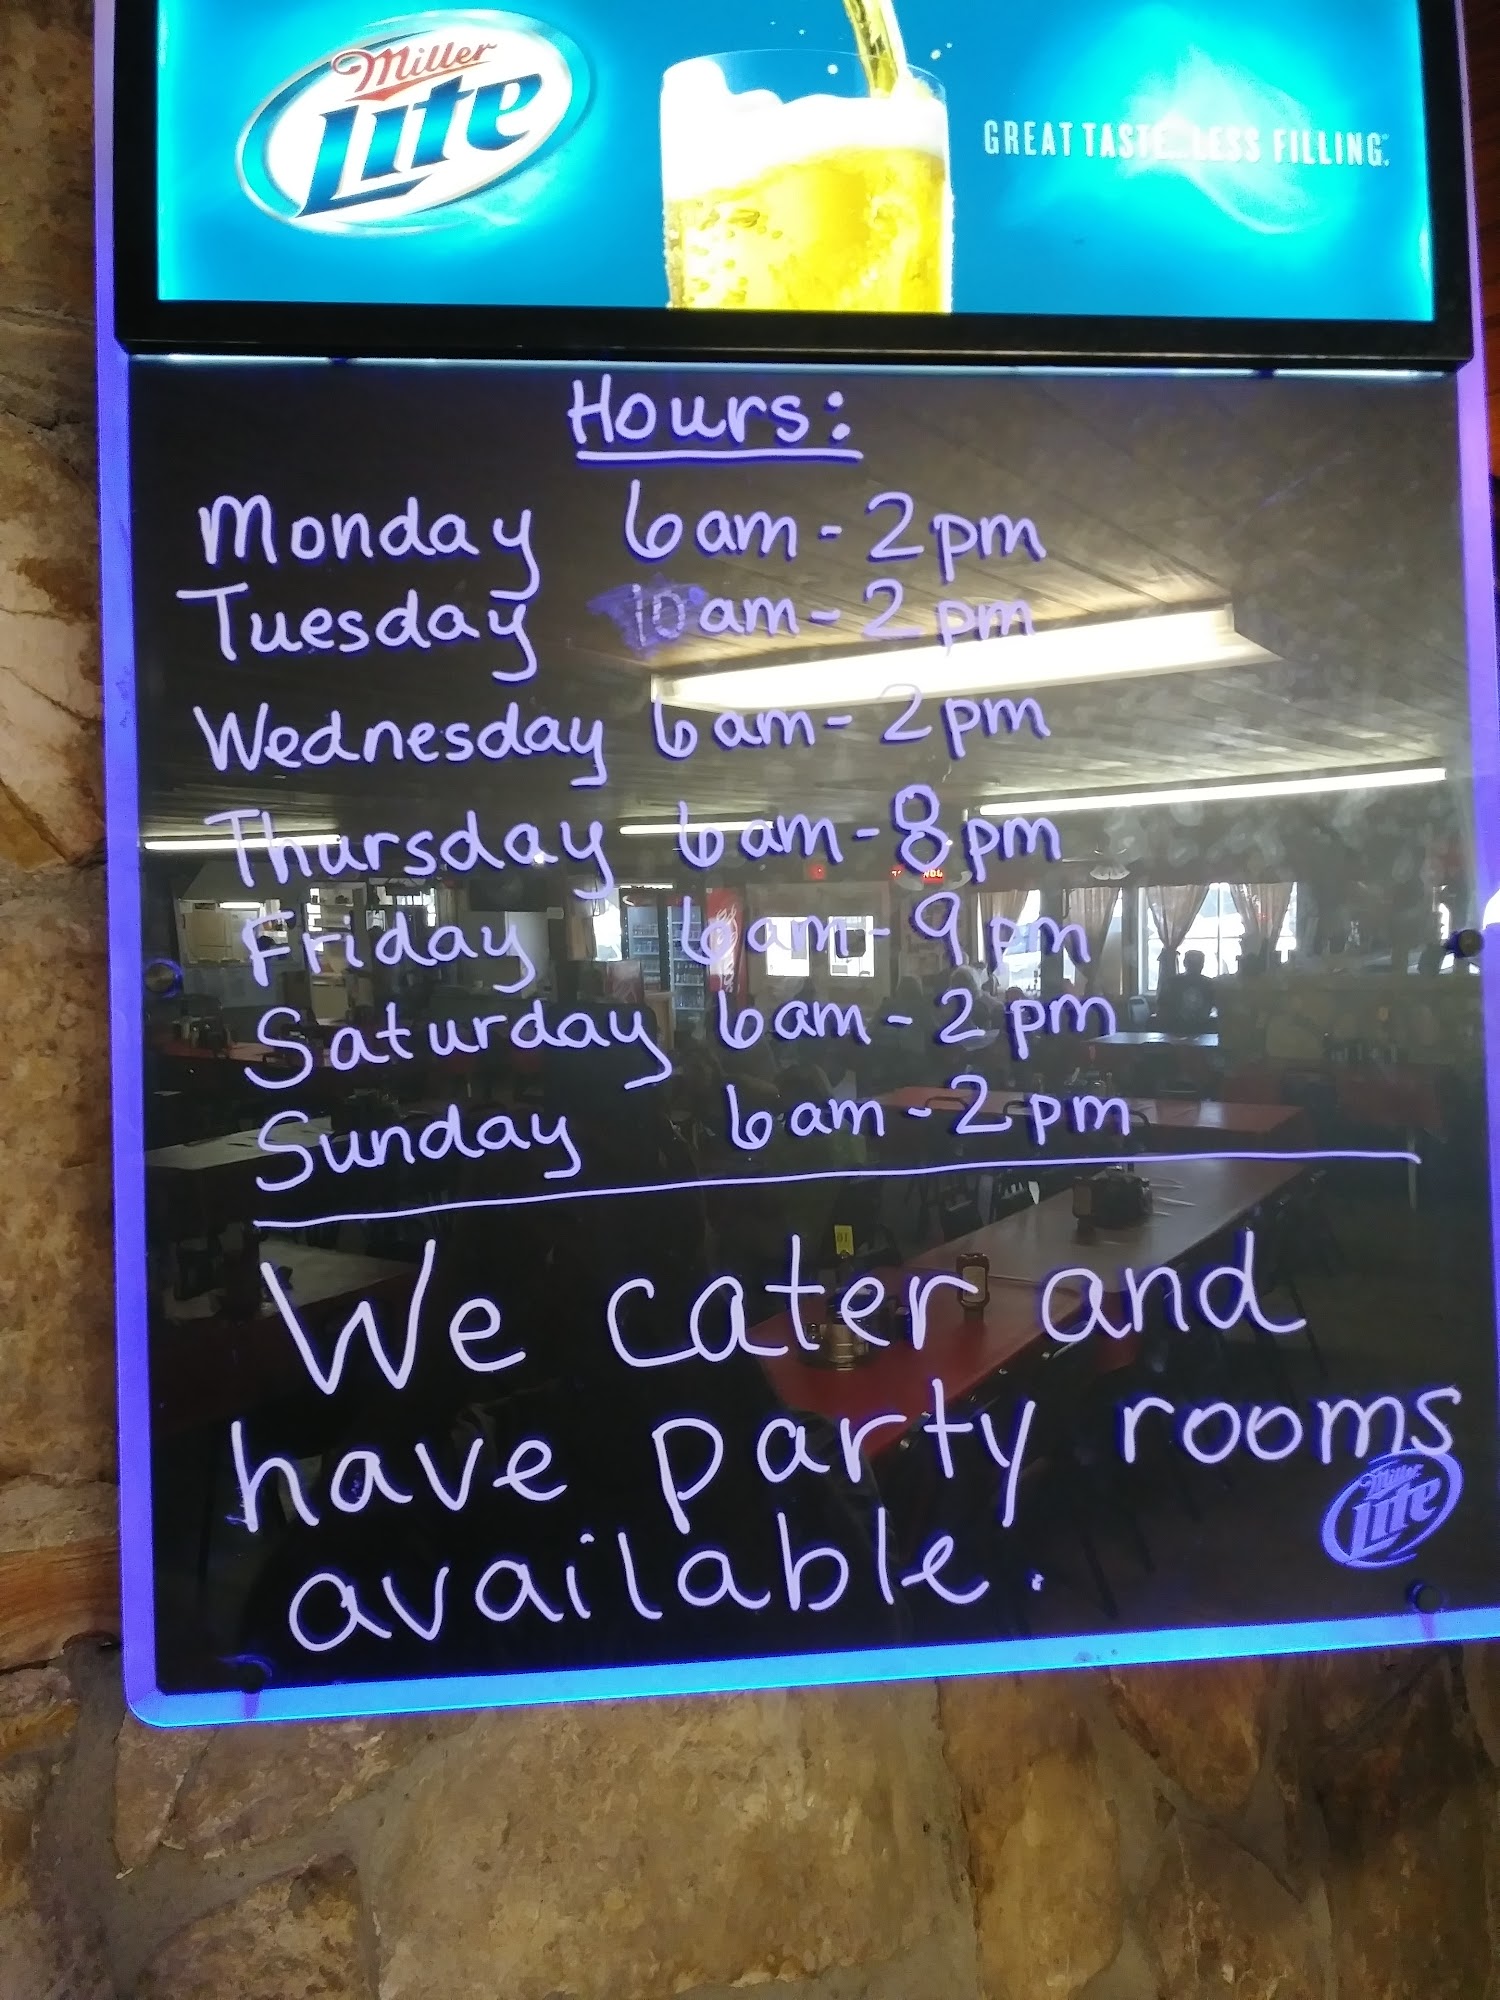 Miller
Lite
GREAT TASTE...LESS FILLING.
Hours:
Monday 6am - 2pm
Tuesday 10am - 2pm
Wednesday 6am - 2pm
Thursday 6am - 8pm
Friday 6am - 9pm
Saturday 6am - 2pm
Sunday 6am - 2pm
We cater and
have party rooms
available.
Miller
Lite